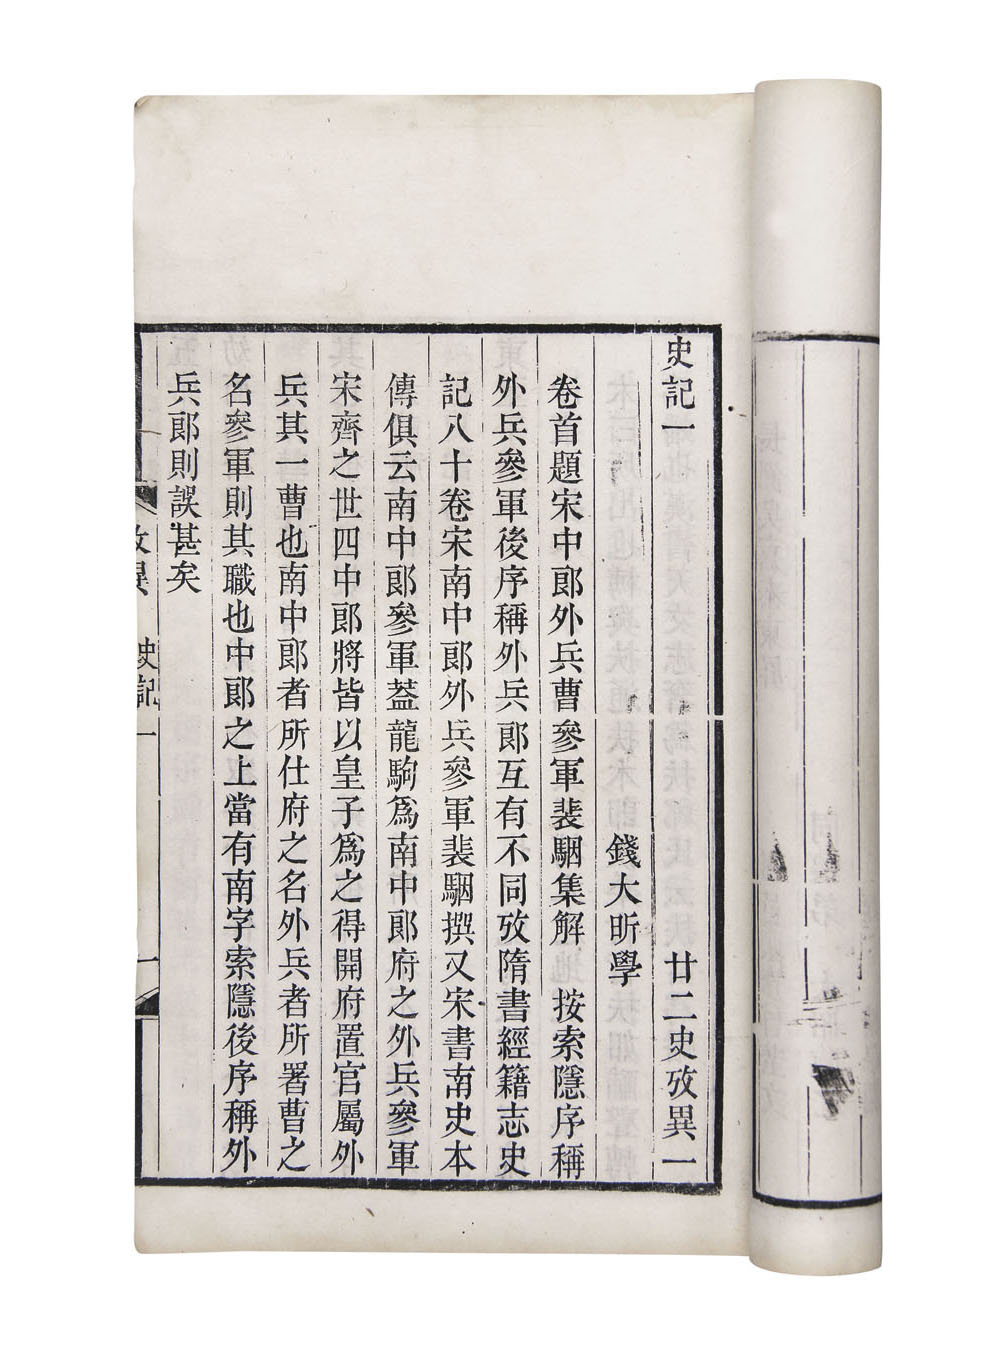 史記一　廿二史攷異一
錢大昕學
卷首題宋中郎外兵曹參軍裴駰集解　按索隱序稱
外兵參軍後序稱外兵郎互有不同攷隋書經籍志史
記八十卷宋南中郎外兵參軍裴駰撰又宋書南史本
傳俱云南中郎參軍葢龍駒爲南中郎府之外兵參軍
宋齊之世四中郎將皆以皇子爲之得開府置官屬外
兵其一曹也南中郎者所仕府之名外兵者所署曹之
名參軍則其職也中郎之上當有南字索隱後序稱外
兵郎則誤甚矣
攷異　史記一　一